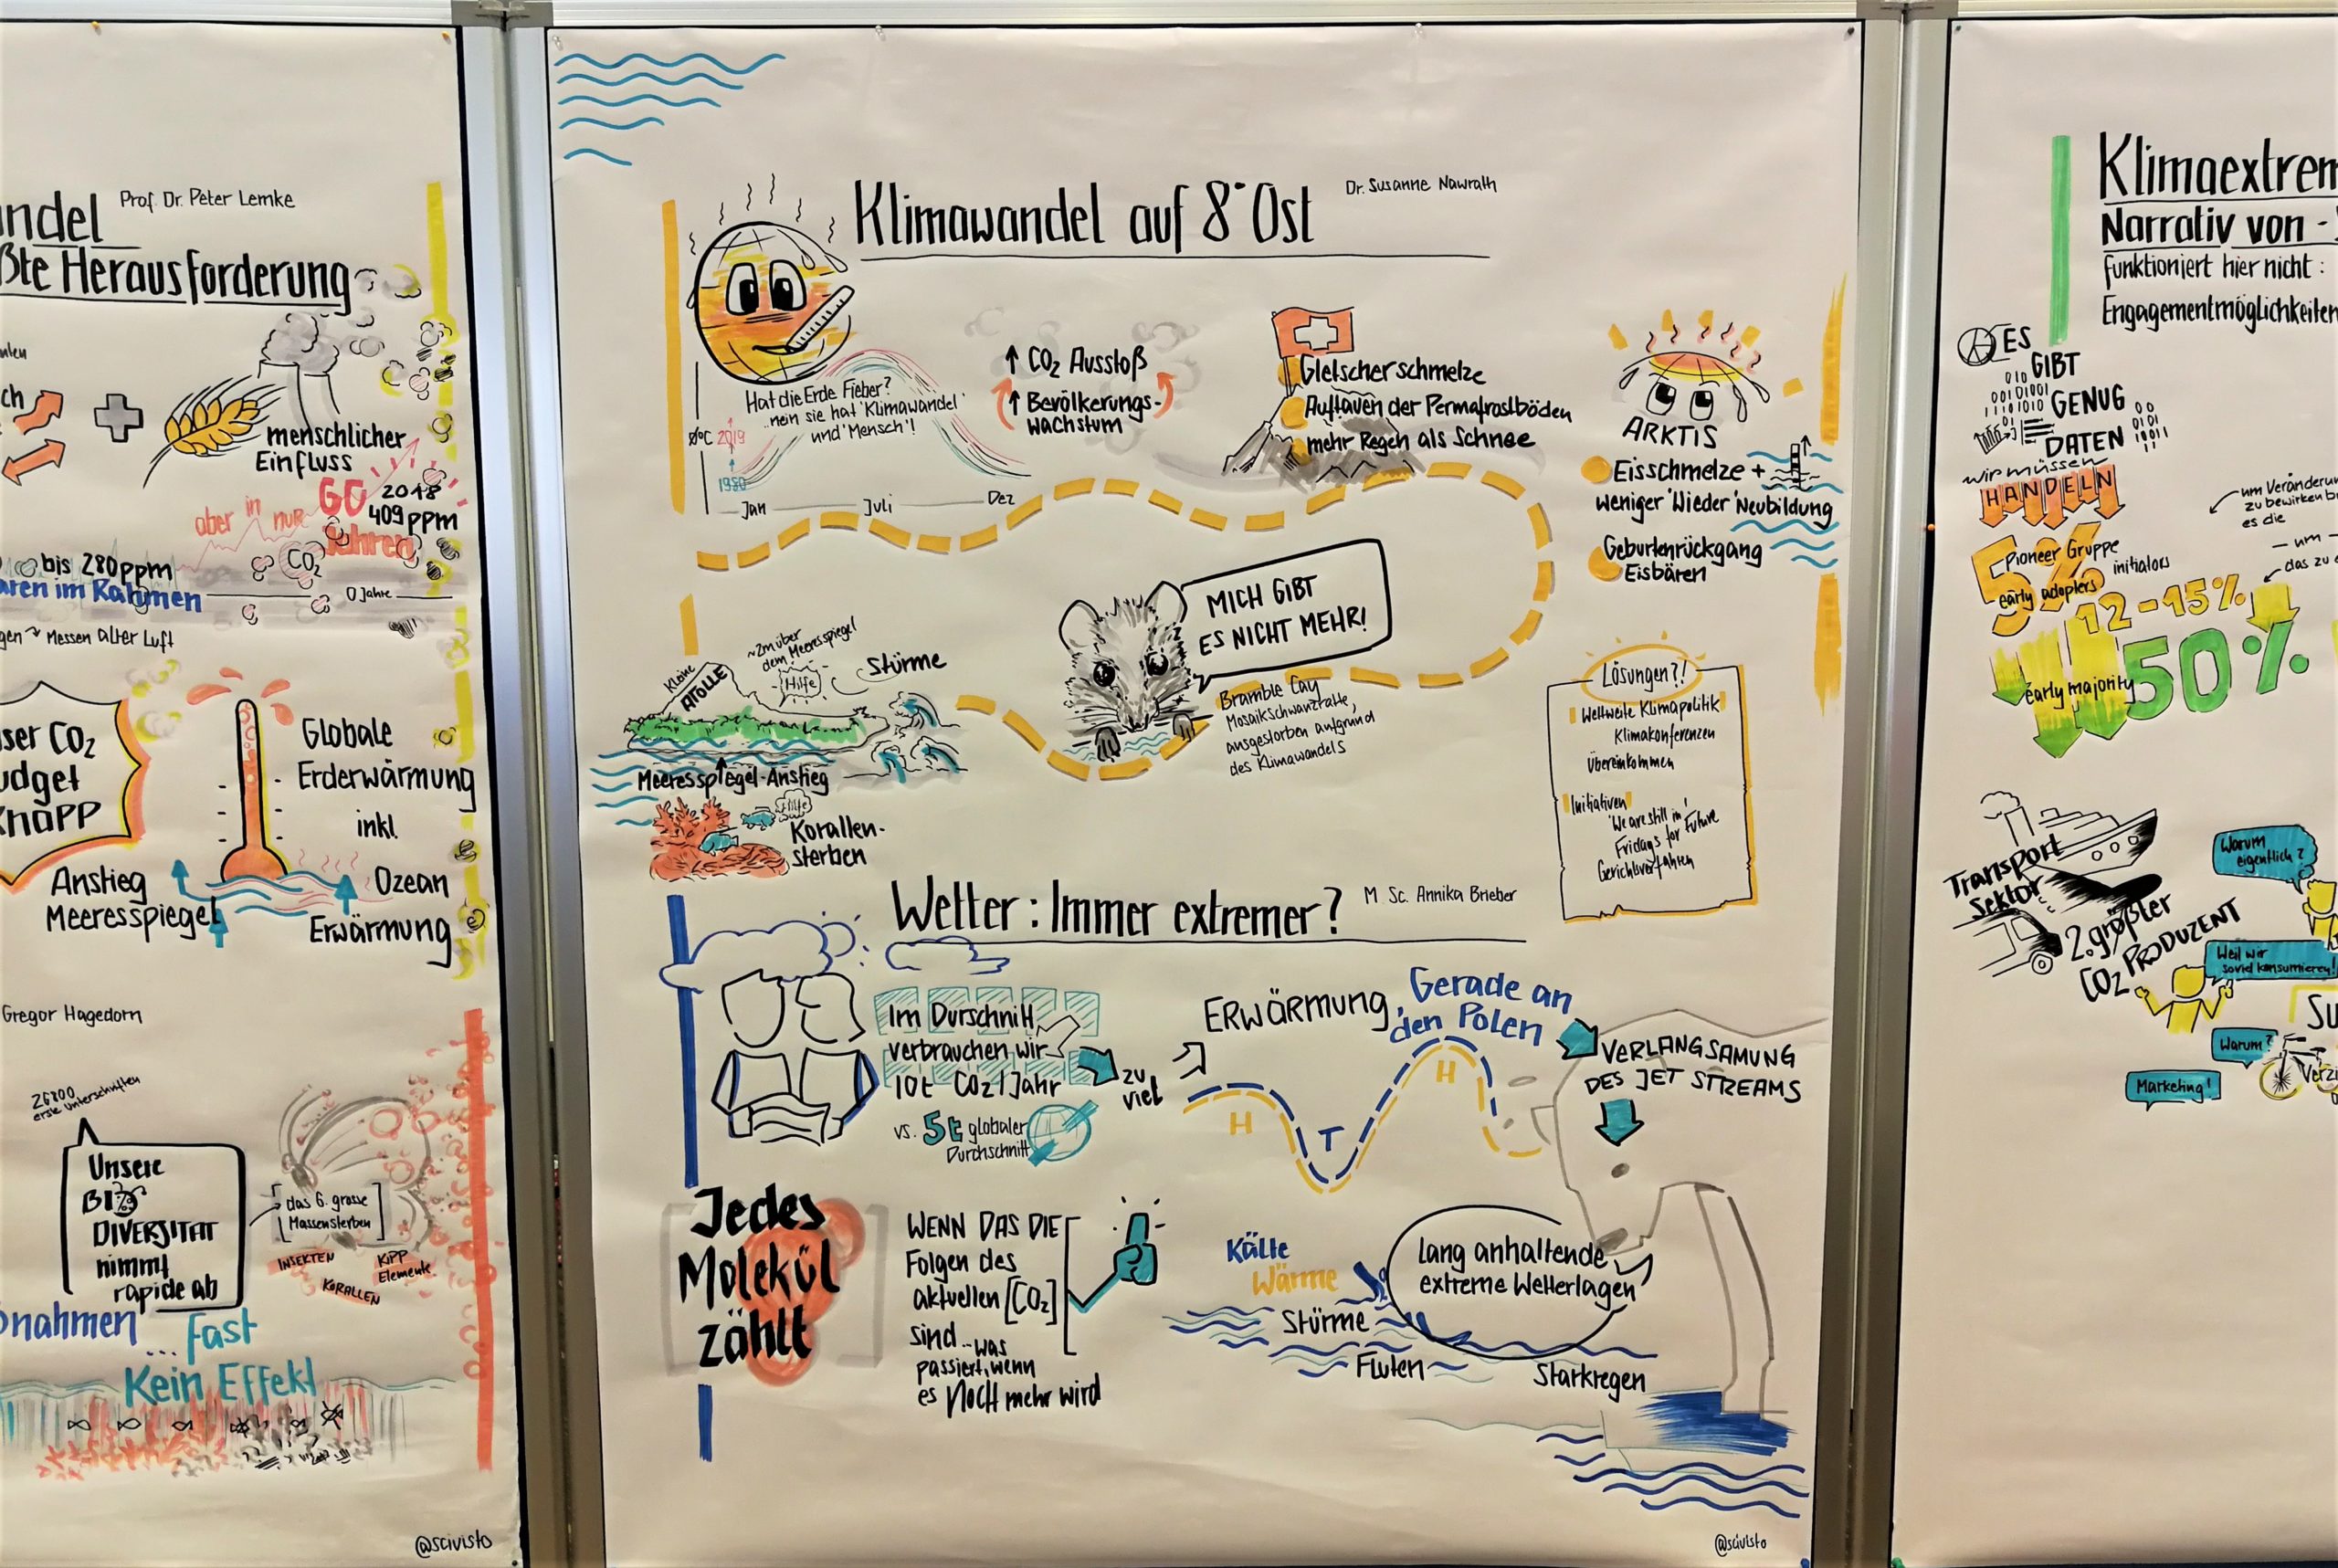 ndel
Prof. Dr. Peter Lemke
ßte Herausforderung
ch
menschlicher
Einfluss
aber in nur
60
Jahren
2018
409 ppm
CO₂
bis 280ppm
aren im Rahmen
0 Jahre
gen Messen alter Luft
ser CO₂
udget
knapp
Globale
Erderwärmung
inkl.
Ozean
Erwärmung
Anstieg
Meeresspiegel
Gregor Hagedorn
26800
erste Unterschriften
Unsere
BIO
DIVERSITÄT
nimmt
rapide ab
das 6. grosse
Massensterben
INSEKTEN
KORALLEN
KIPP
Elemente
ßnahmen
... fast
Kein Effekt
@scivisto
Klimawandel auf 8° Ost
Dr. Susanne Nawrath
Hat die Erde Fieber?
..nein sie hat 'Klimawandel'
und 'Mensch'!
ø/°C
2019
1980
Jan
Juli
Dez
↑ CO₂ Ausstoß
↑ Bevölkerungs-
wachstum
Gletscherschmelze
Auftauen der Permafrostböden
mehr Regen als Schnee
ARKTIS
Eisschmelze +
weniger 'Wieder' Neubildung
Geburtenrückgang
Eisbären
MICH GIBT
ES NICHT MEHR!
Bramble Cay
Mosaikschwanzratte,
ausgestorben aufgrund
des Klimawandels
Kleine
ATOLLE
~2m über
dem Meeresspiegel
Hilfe
Stürme
Meeresspiegel-Anstieg
Hilfe
Korallen-
sterben
Lösungen?!
Weltweite Klimapolitik
Klimakonferenzen
Übereinkommen
Initiativen
'We are still in'
Fridays for Future
Gerichtsverfahren
Wetter: Immer extremer?
M. Sc. Annika Brieber
Im Durschnitt
verbrauchen wir
10t CO₂/Jahr
zu
viel
vs. 5t globaler
Durchschnitt
ERWÄRMUNG,
Gerade an
den Polen
VERLANGSAMUNG
DES JET STREAMS
H
T
H
Jedes
Molekül
zählt
WENN DAS DIE
Folgen des
aktuellen [CO₂]
sind ... was
passiert, wenn
es Noch mehr wird
Kälte
Wärme
Stürme
Fluten
Starkregen
Lang anhaltende
extreme Wetterlagen
@scivisto
Klimaextrem
Narrativ von -
funktioniert hier nicht:
Engagementmöglichkeiten
ES
GIBT
GENUG
DATEN
wir müssen
HANDELN
um Veränderun
zu bewirken b
es die
5%
Pioneer Gruppe
early adopters
initiators
— um —
das zu
12-15%
early majority
50%
Transport
Sektor
2. größter
CO₂ PRODUZENT
Warum
eigentlich?
Weil wir
soviel konsumieren!
Warum?
Marketing!
Su
Verzi